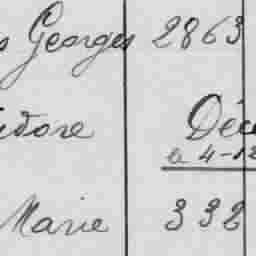 Georges 2863
Déc
le 4-12
Marie 332